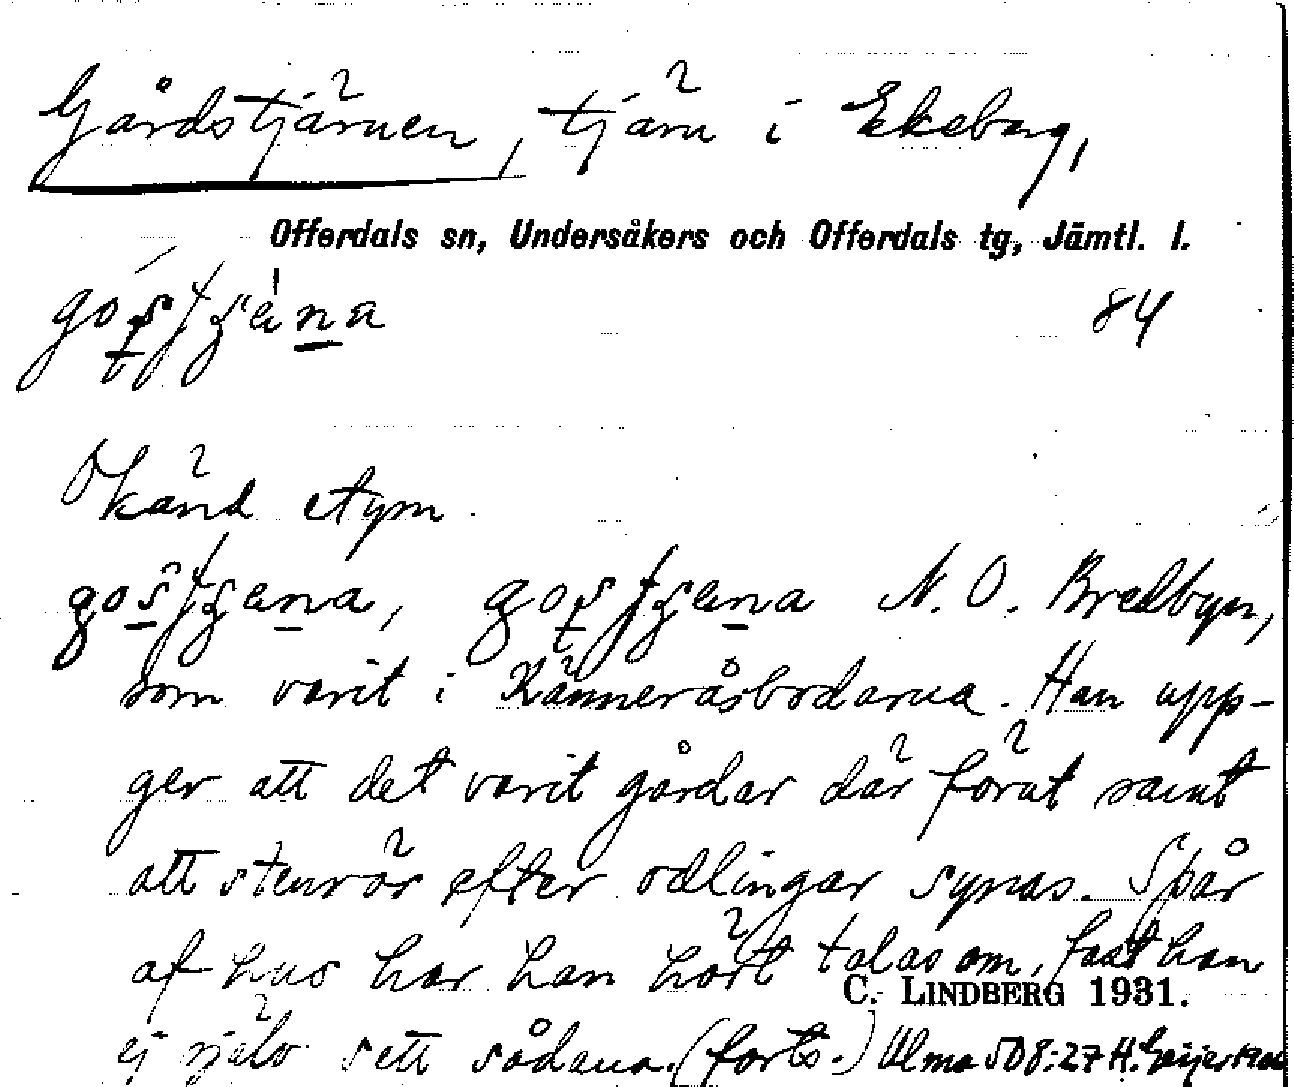 Gårdstjärnen, tjärn i Ekeberg,
Offerdals sn, Undersåkers och Offerdals tg, Jämtl. l.
84
Okänd etym.
N. O. Bredbyn,
som varit i Känneråsbodarna. Han upp-
ger att det varit gårdar där förut samt
att stenrör efter odlingar synas. Spår
af hus har han hört talas om, fast han
C. LINDBERG 1931.
ej själv sett sådana. (forts.) Ulma 508:27 H. Geijer